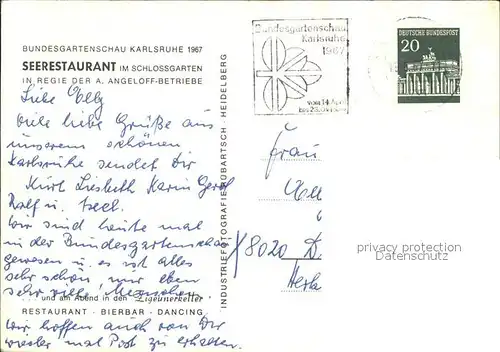 BUNDESGARTENSCHAU KARLSRUHE 1967
SEERESTAURANT IM SCHLOSSGARTEN
IN REGIE DER A. ANGELOFF-BETRIEBE
Liebe Elly
viele liebe Grüße aus
unserem schönen
Karlsruhe sendet Dir
Kurt Liesbeth Karin Gerol
Rolf u.
Wir sind heute mal
in der Bundesgartenschau
gewesen u. es ist alles
sehr schön, nur eben
sehr viele Menschen.
... und am Abend in den „Zigeunerkeller“
RESTAURANT · BIERBAR · DANCING
Wir hoffen auch von Dir
wieder mal Post zu erhalten.
INDUSTRIEFOTOGRAFIE KUBARTSCH · HEIDELBERG
Bundesgartenschau
Karlsruhe
1967
vom 14. Apr
bis 23. Oktober
DEUTSCHE BUNDESPOST
20
Frau
Elly
8020 D.
privacy protection
Datenschutz